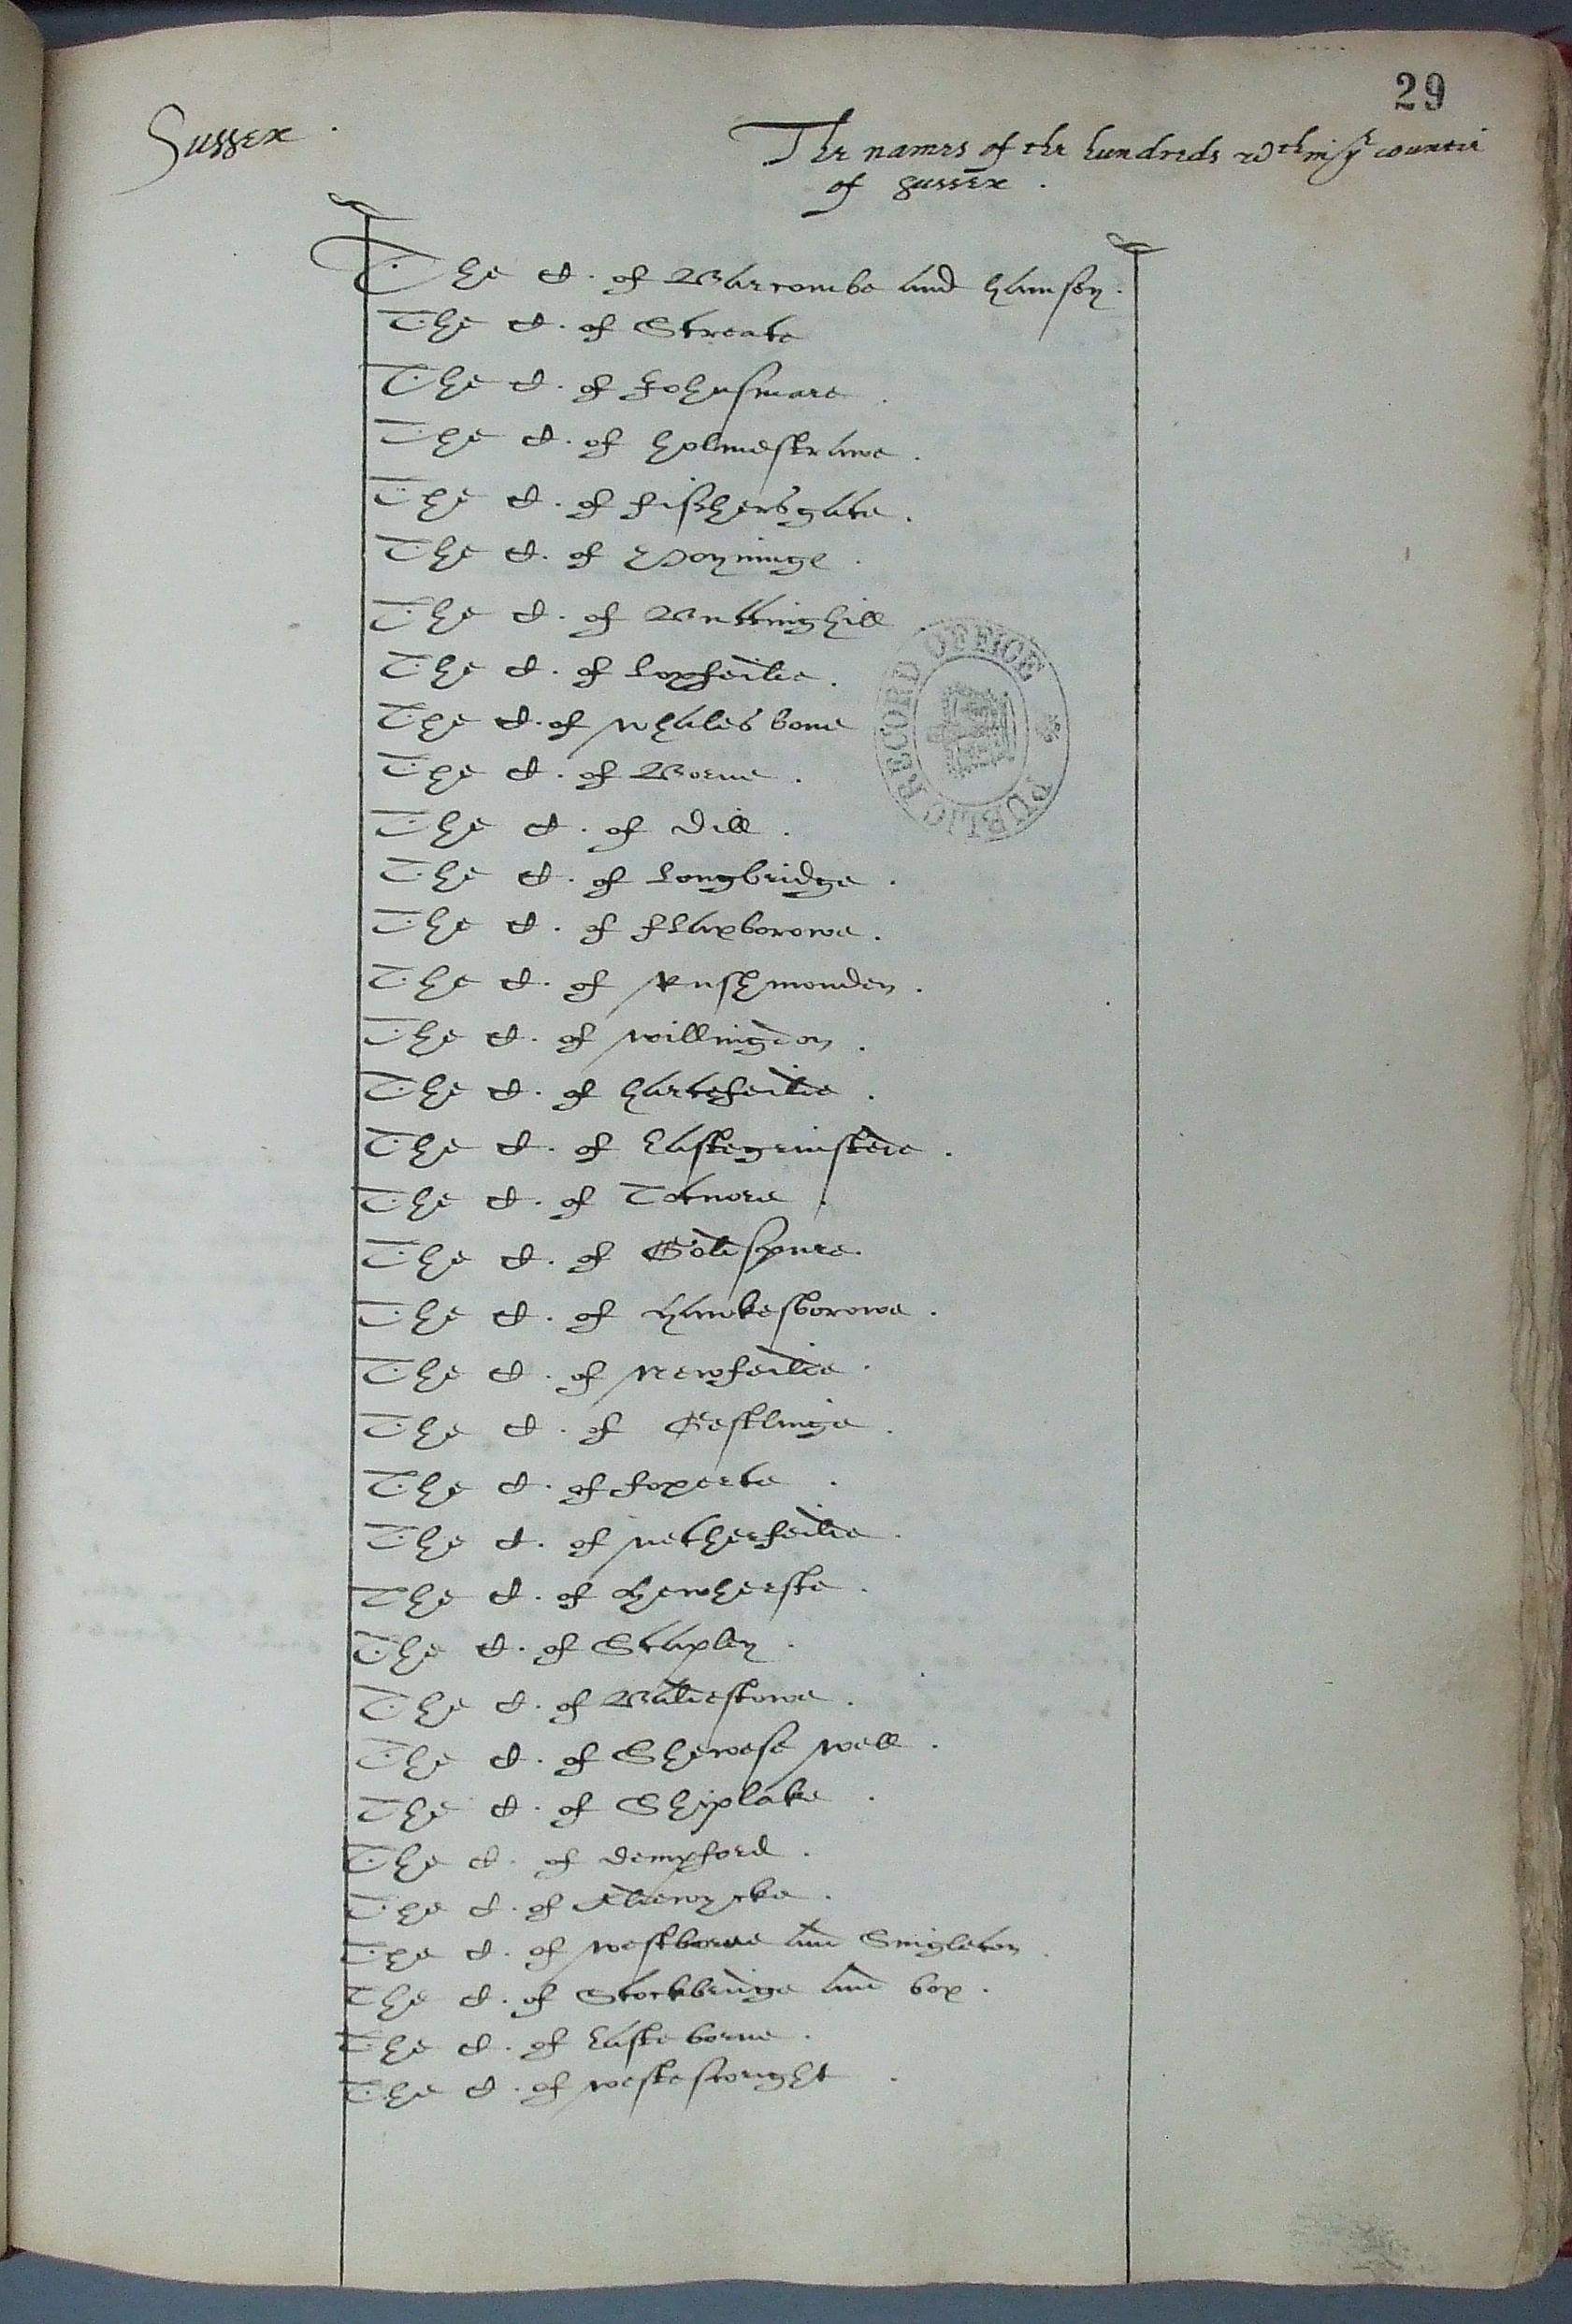 29
Sussex .
The names of the hundreds wthin yr countie
of Sussex .
The H . of Barcombe and Hamsey .
The H . of Streate
The H . of Yohnsmare .
The H . of Holmestrawe .
The H . of Fishersgate .
The H . of Poyninge .
The H . of Buttinghill
The H . of Loxfeilde .
The H . of Whalesbone
The H . of Borne .
The H . of Dill .
The H . of Longbridge .
The H . of Flaxborowe .
The H . of Rushmonden .
The H . of Willingdon .
The H . of Hartefeilde .
The H . of Eastegrinstede .
The H . of Totnore .
The H . of Goldspure .
The H . of Hawkesborowe .
The H . of Newfeilde .
The H . of Gestlinge .
The H . of Foxerte .
The H . of Netherfeilde .
The H . of Henherste .
The H . of Stapley .
The H . of Baldestowe .
The H . of Shewese well .
The H . of Shiplake .
The H . of Dempford .
The H . of Aldewycke .
The H . of Westborne and Singleton .
The H . of Stockbridge and box .
The H . of Easteborne .
The H . of Westeswright .
PUBLIC RECORD OFFICE